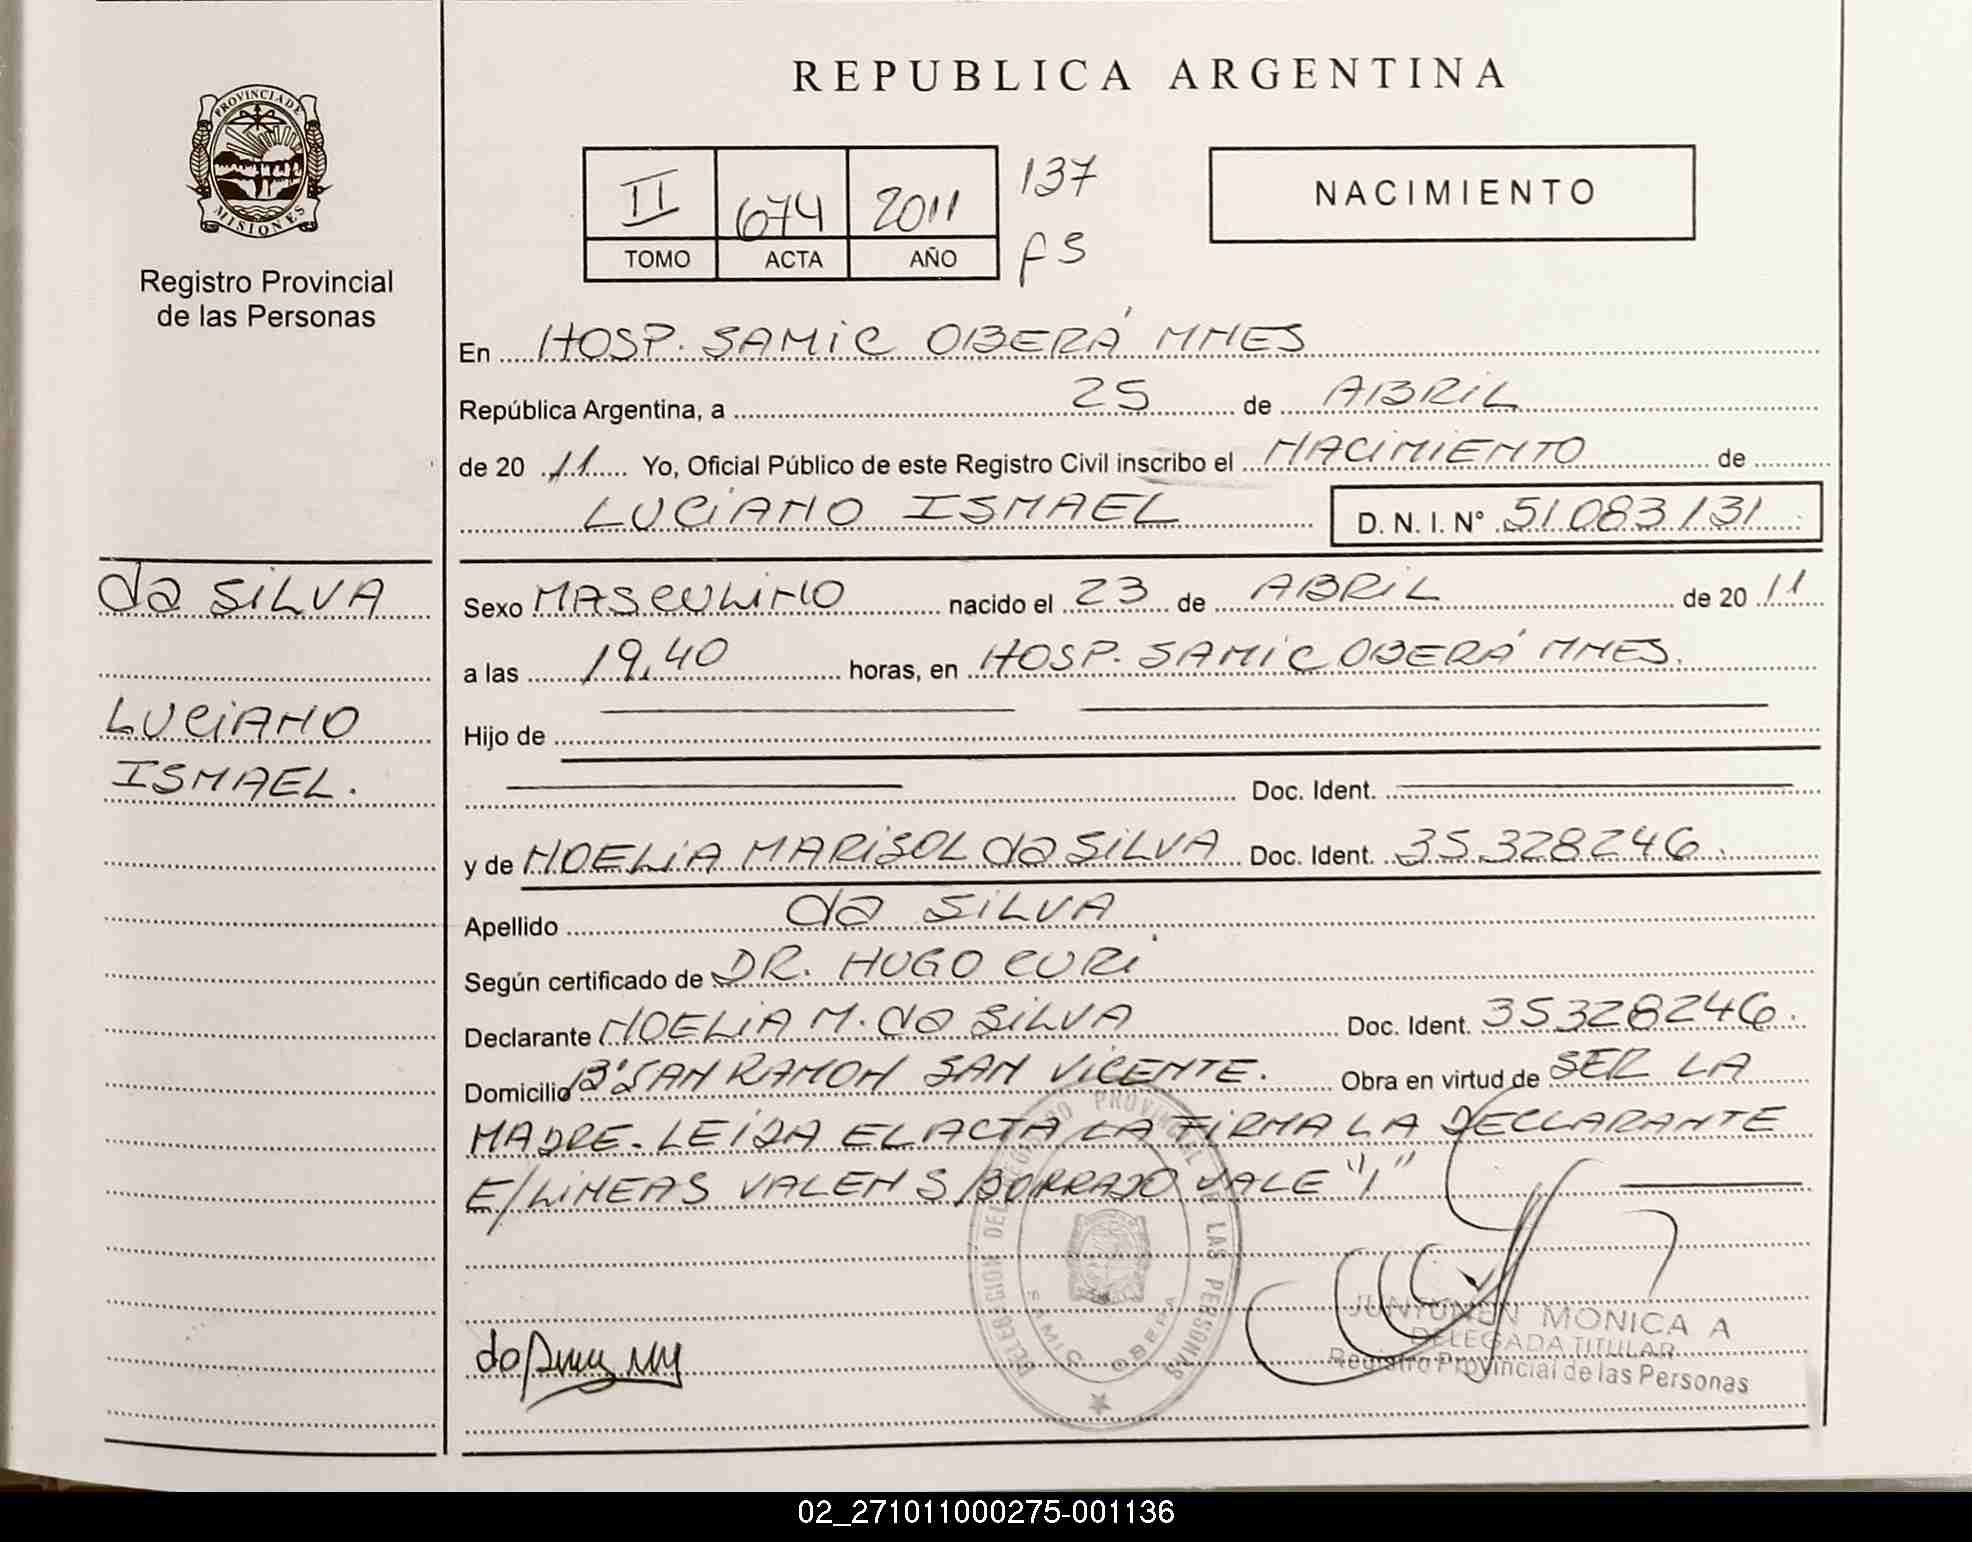 REPUBLICA ARGENTINA
PROVINCIA DE
MISIONES
Registro Provincial
de las Personas
II 674 2011 137
TOMO ACTA AÑO FS
NACIMIENTO
En HOSP. SAMIC OBERÁ MNES
República Argentina, a 25 de ABRIL
de 20 11 Yo, Oficial Público de este Registro Civil inscribo el NACIMIENTO de
LUCIANO ISMAEL D. N. I. N° 51083131
da SILVA
LUCIANO
ISMAEL.
Sexo MASCULINO nacido el 23 de ABRIL de 20 11
a las 19,40 horas, en HOSP. SAMIC OBERÁ MNES.
Hijo de
Doc. Ident.
y de NOELIA MARISOL da SILVA Doc. Ident. 35.328246.
Apellido da SILVA
Según certificado de DR. HUGO CURI
Declarante NOELIA M. da SILVA Doc. Ident. 35328246.
Domicilio B° SAN RAMON SAN VICENTE. Obra en virtud de SER LA
MADRE. LEIDA EL ACTA LA FIRMA LA DECLARANTE
E/LINEAS VALEN S/BORRADO VALE "1"
DELEGACION DEL REGISTRO PROVINCIAL DE LAS PERSONAS
SAMIC OBERA
JUNYONEN MONICA A
DELEGADA TITULAR
Registro Provincial de las Personas
02_271011000275-001136